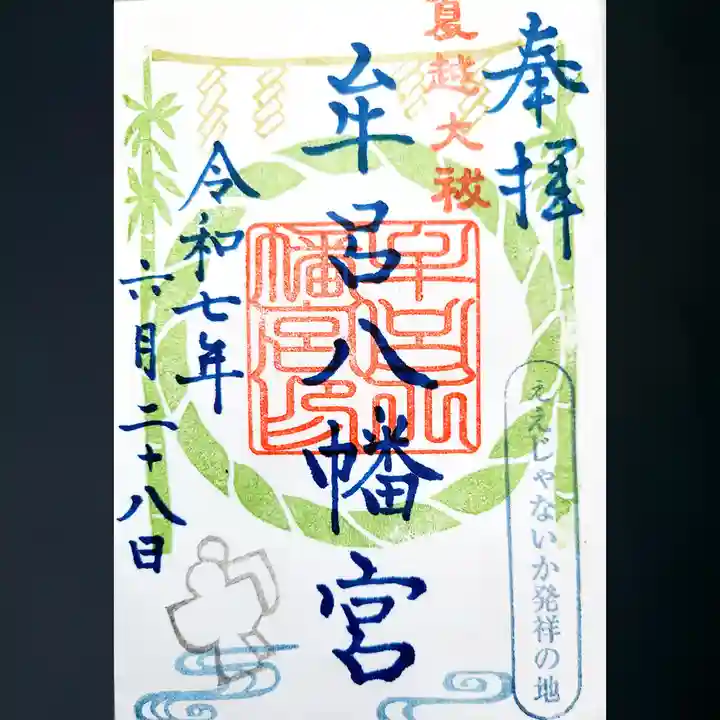 奉拝
夏越大祓
牟呂八幡宮
牟呂八
幡宮印
令和七年
六月二十八日
ええじゃないか発祥の地